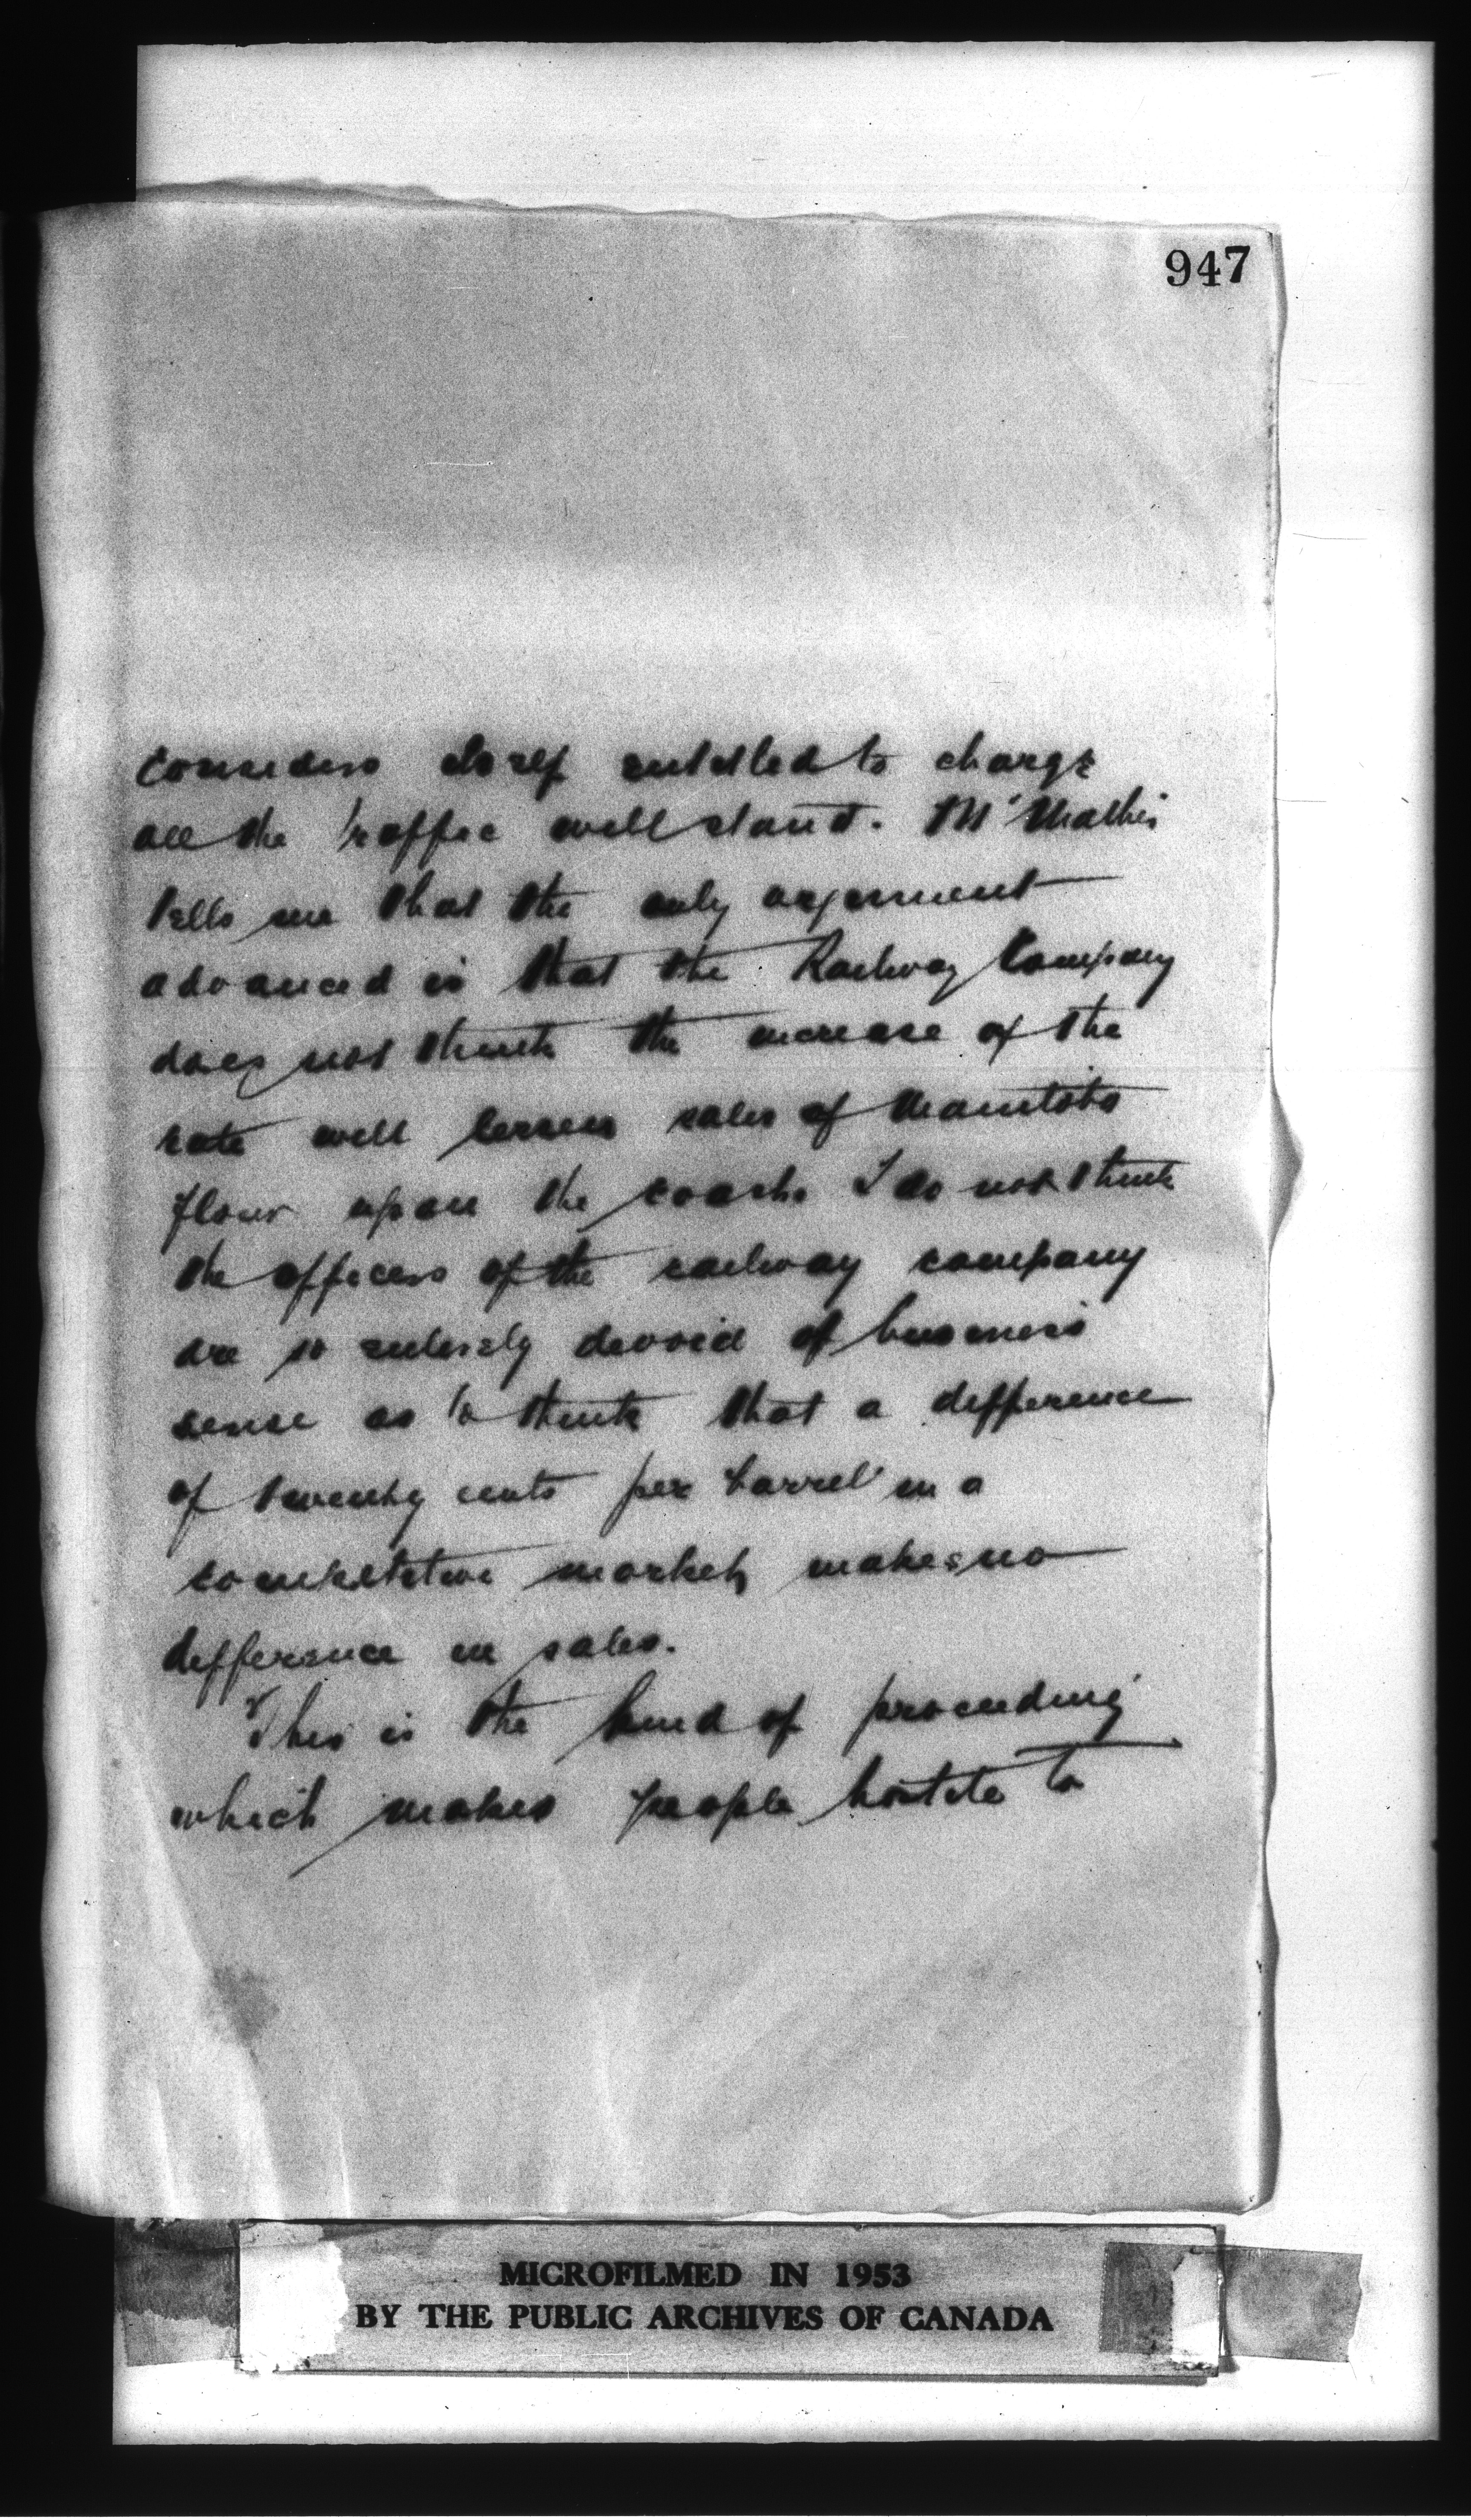 947
considers itself entitled to charge
all the traffic will stand. Mr Mathis
tells me that the only argument
advanced is that the Railway Company
does not think the increase of the
rate will lessen sales of Manitoba
flour upon the coast. I do not think
the officers of the railway company
are so entirely devoid of business
sense as to think that a difference
of twenty cents per barrel in a
competitive market, makes no
difference in sales.
This is the kind of proceeding
which makes people hostile to
MICROFILMED IN 1953
BY THE PUBLIC ARCHIVES OF CANADA